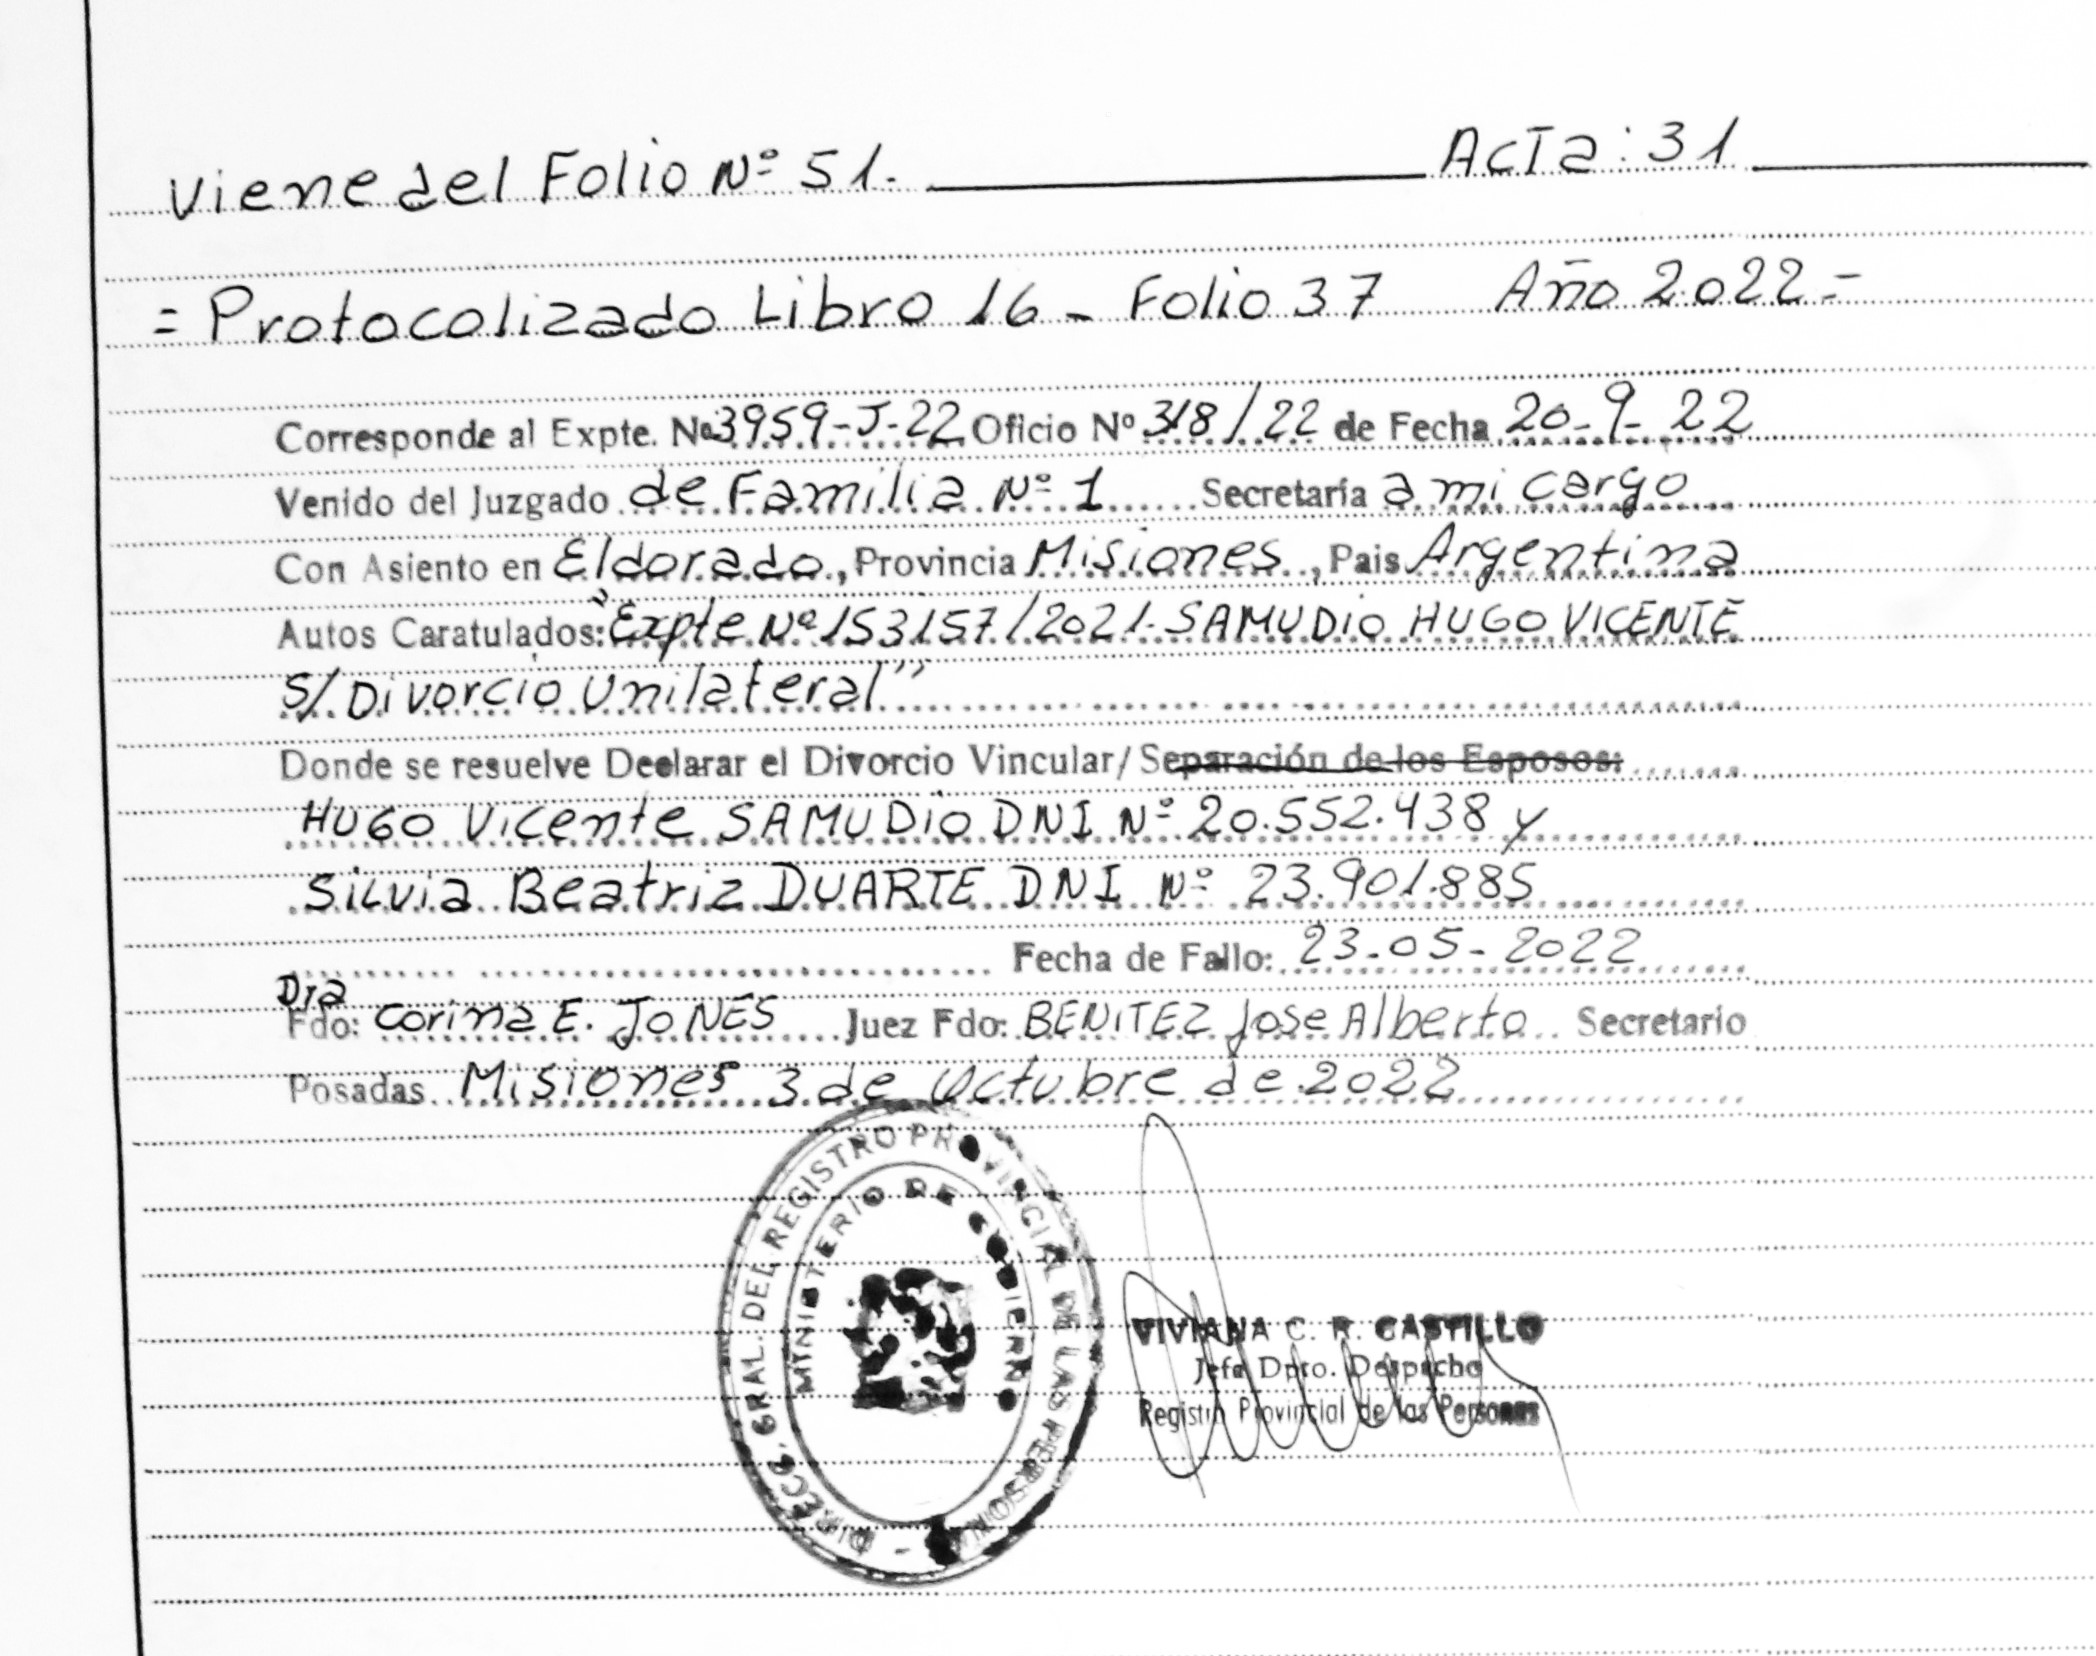 Viene del Folio Nº 51. Acta: 31
= Protocolizado Libro 16 - Folio 37 Año 2022 =
Corresponde al Expte. Nº 3959-J-22 Oficio Nº 318/22 de Fecha 20-9-22
Venido del Juzgado de Familia Nº 1 Secretaría a mi cargo
Con Asiento en Eldorado, Provincia Misiones, Pais Argentina
Autos Caratulados: "Expte Nº 153157/2021- SAMUDIO HUGO VICENTE
S/ Divorcio Unilateral"
Donde se resuelve Declarar el Divorcio Vincular/ Separación de los Esposos:
HUGO Vicente SAMUDIO DNI Nº 20.552.438 y
Silvia Beatriz DUARTE DNI Nº 23.901.885
Fecha de Fallo: 23-05-2022
Dra
Fdo: Corina E. JONES Juez Fdo: BENITEZ Jose Alberto Secretario
Posadas Misiones 3 de Octubre de 2022
DIRECC. GRAL. DEL REGISTRO PROVINCIAL DE LAS PERSONAS -
MINISTERIO DE GOBIERNO
VIVIANA C. R. CASTILLO
Jefa Dpto. Despacho
Registro Provincial de las Personas